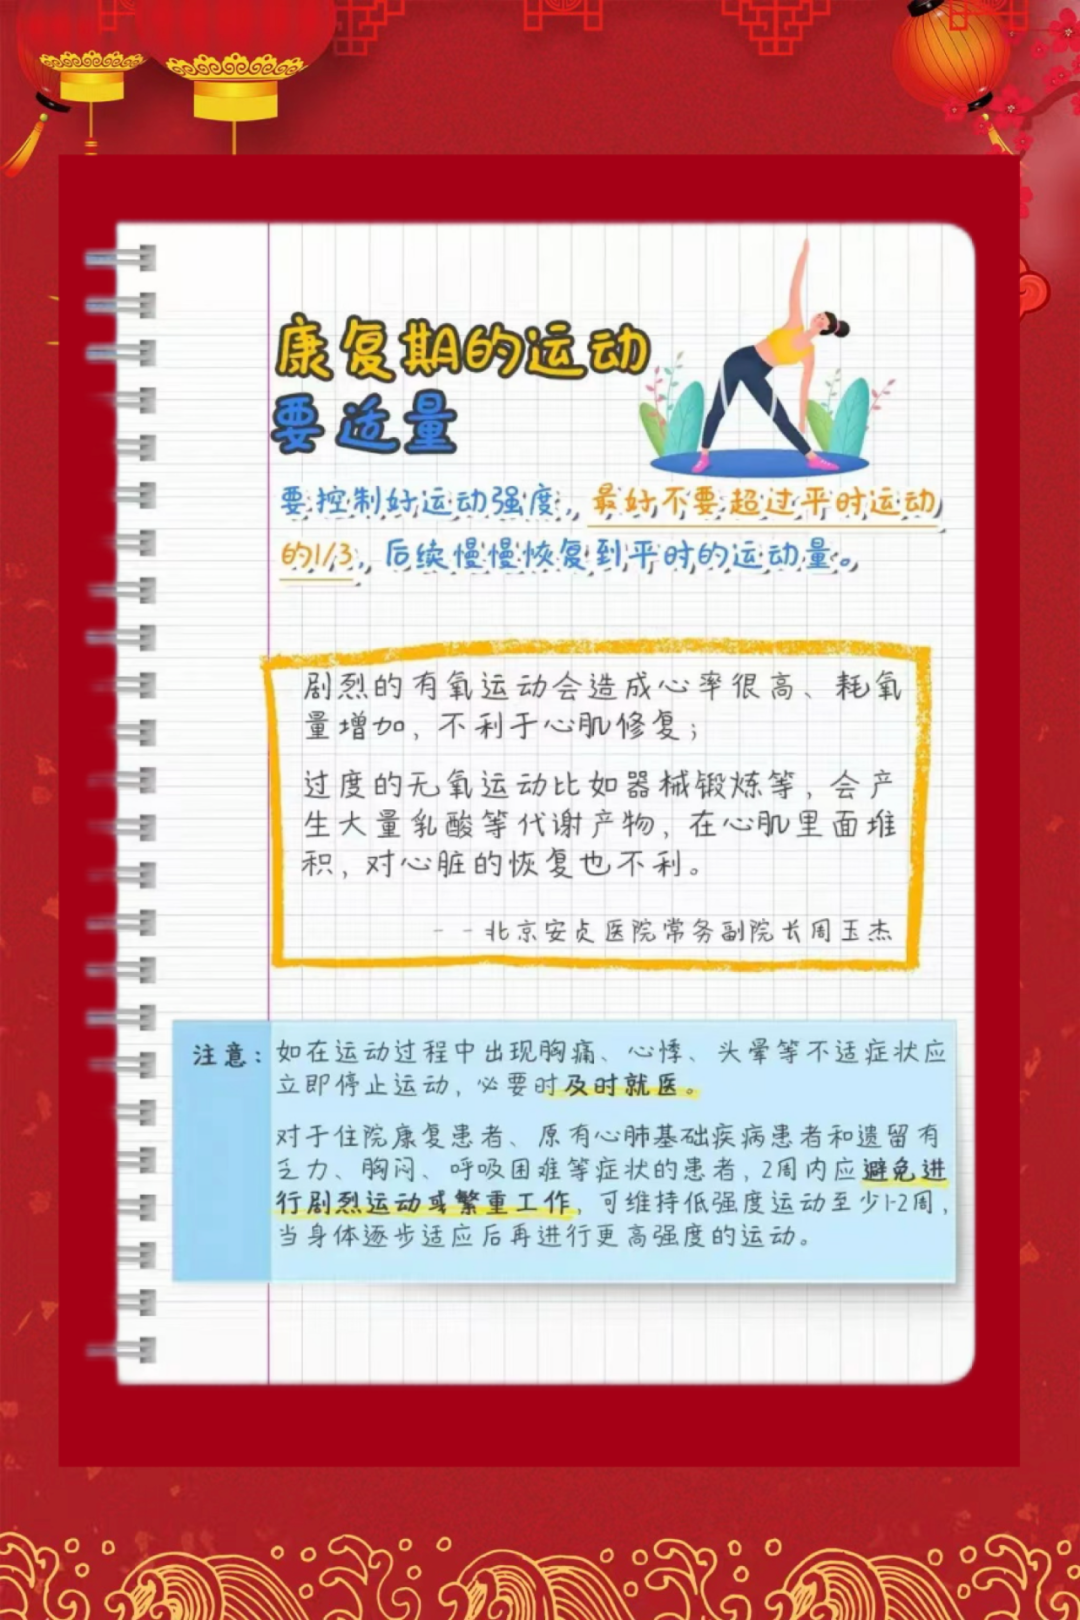 康复期的运动
要适量
要控制好运动强度，最好不要超过平时运动
的1/3，后续慢慢恢复到平时的运动量。
剧烈的有氧运动会造成心率很高、耗氧
量增加，不利于心肌修复；
过度的无氧运动比如器械锻炼等，会产
生大量乳酸等代谢产物，在心肌里面堆
积，对心脏的恢复也不利。
--北京安贞医院常务副院长周玉杰
注意：如在运动过程中出现胸痛、心悸、头晕等不适症状应
立即停止运动，必要时及时就医。
对于住院康复患者、原有心肺基础疾病患者和遗留有
乏力、胸闷、呼吸困难等症状的患者，2周内应避免进
行剧烈运动或繁重工作，可维持低强度运动至少1-2周，
当身体逐步适应后再进行更高强度的运动。